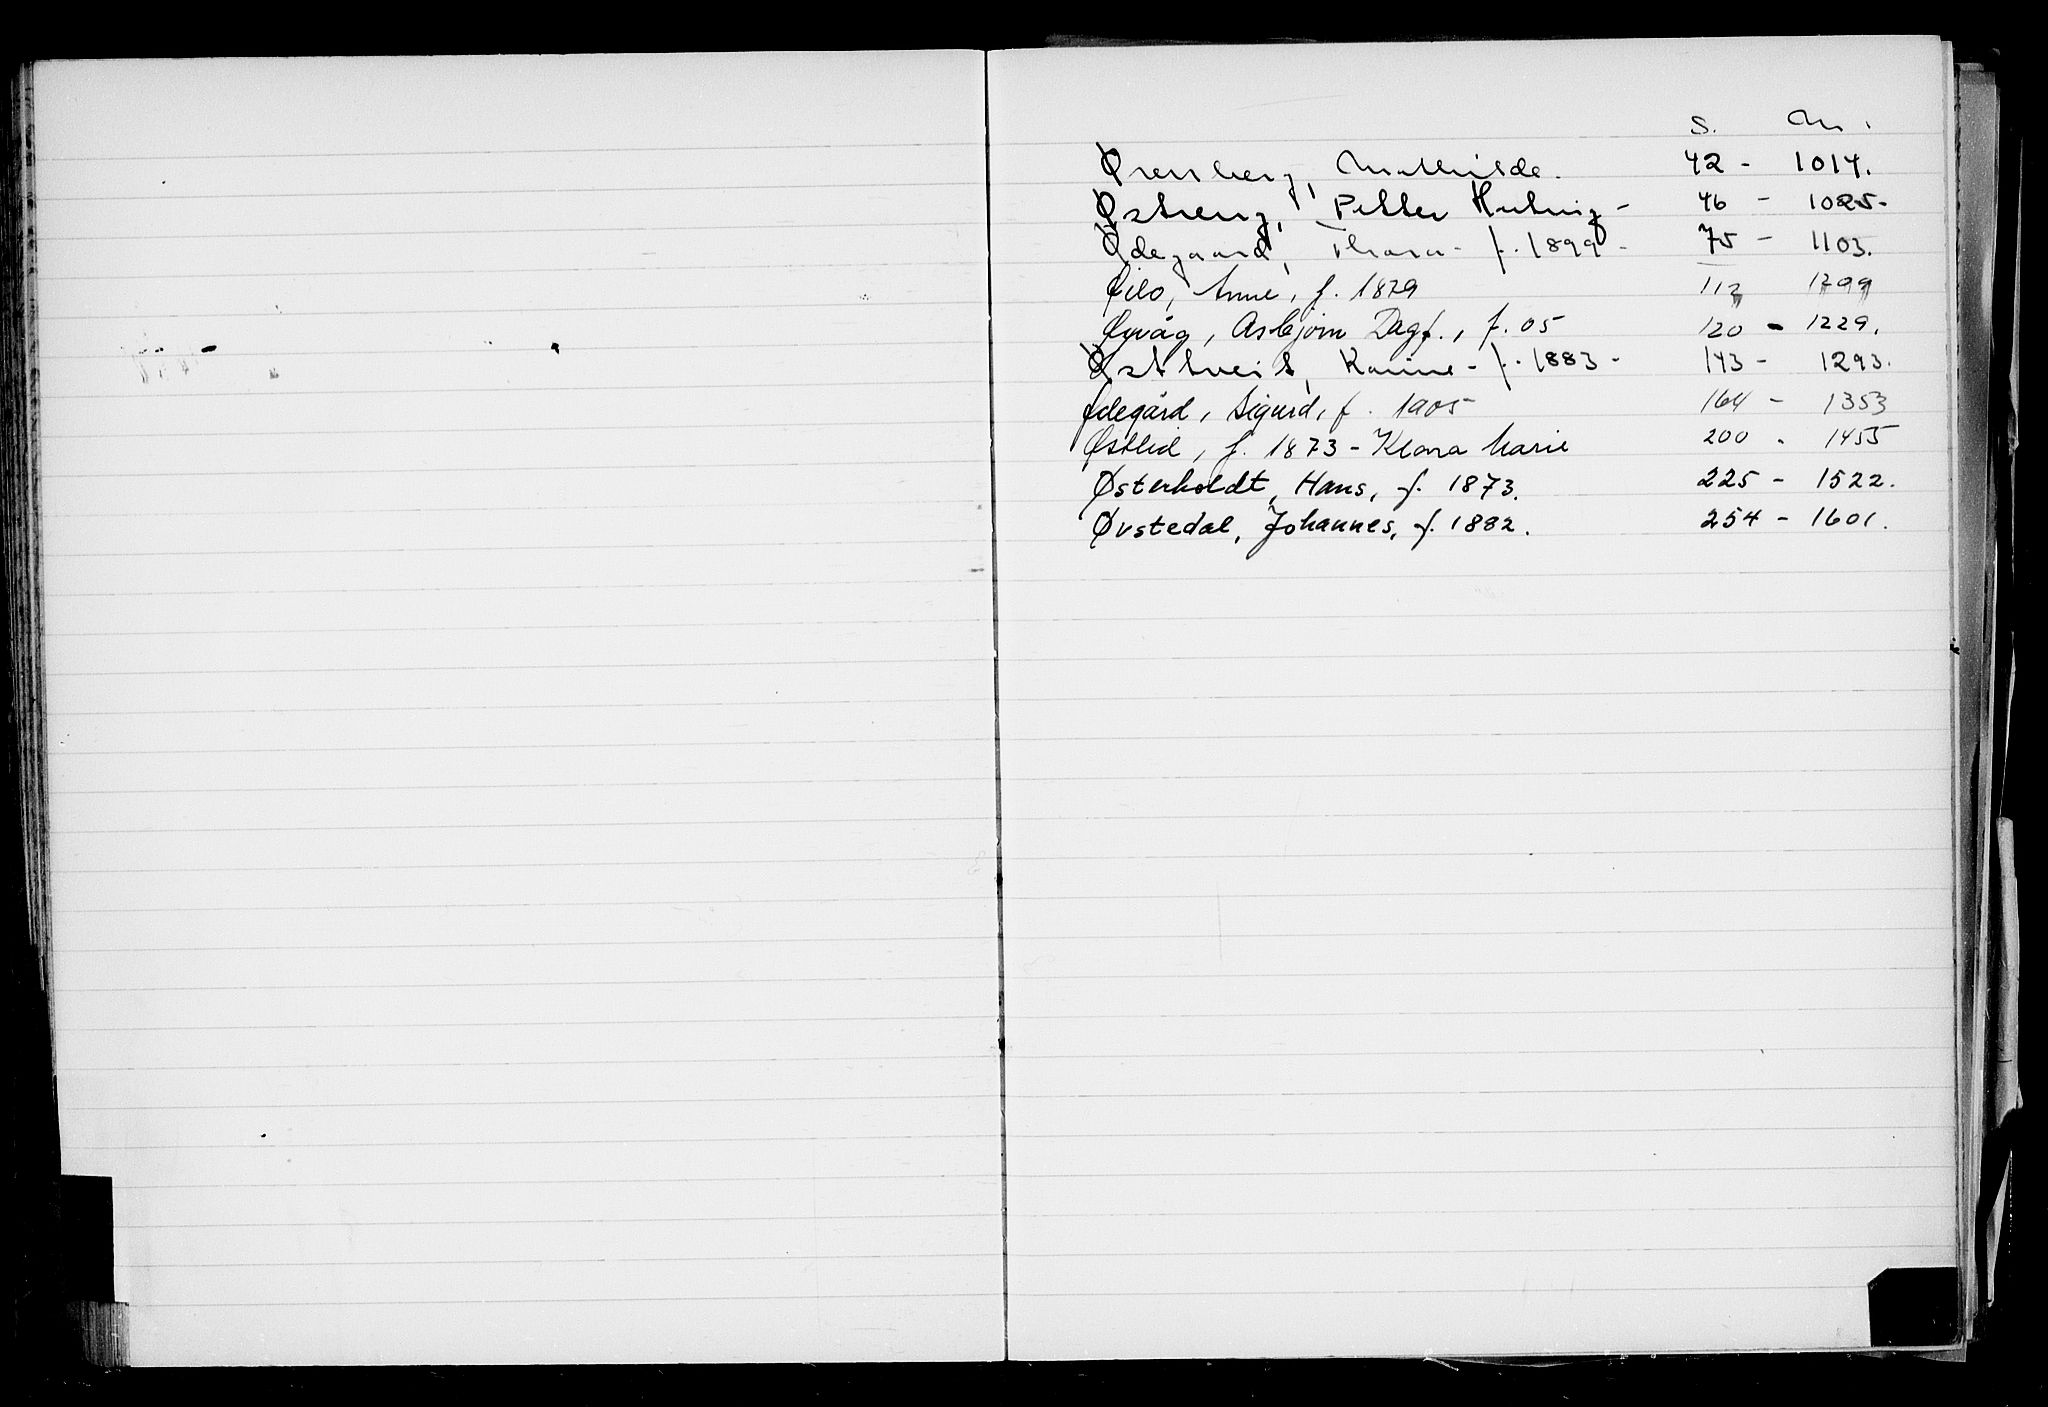 S. Nr.
Ørenberg, Mathilde. 42 - 1014.
Østreng, Petter Hartvig - 46 - 1025.
Ødegaard, Thora - f. 1899 - 75 - 1103.
Øilo, Anne, f. 1879 112
Øyvåg, Asbjörn Dagf., f. 05 120 - 1229.
Østtveit, Karine - f. 1883 - 143 - 1293.
Ødegård, Sigurd, f. 1905 164 - 1353
Østlid, f. 1873 - Klara Marie 200 - 1455
Østerholdt, Hans, f. 1873. 225 - 1522.
Øvstedal, Johannes, f. 1882. 254 - 1601.